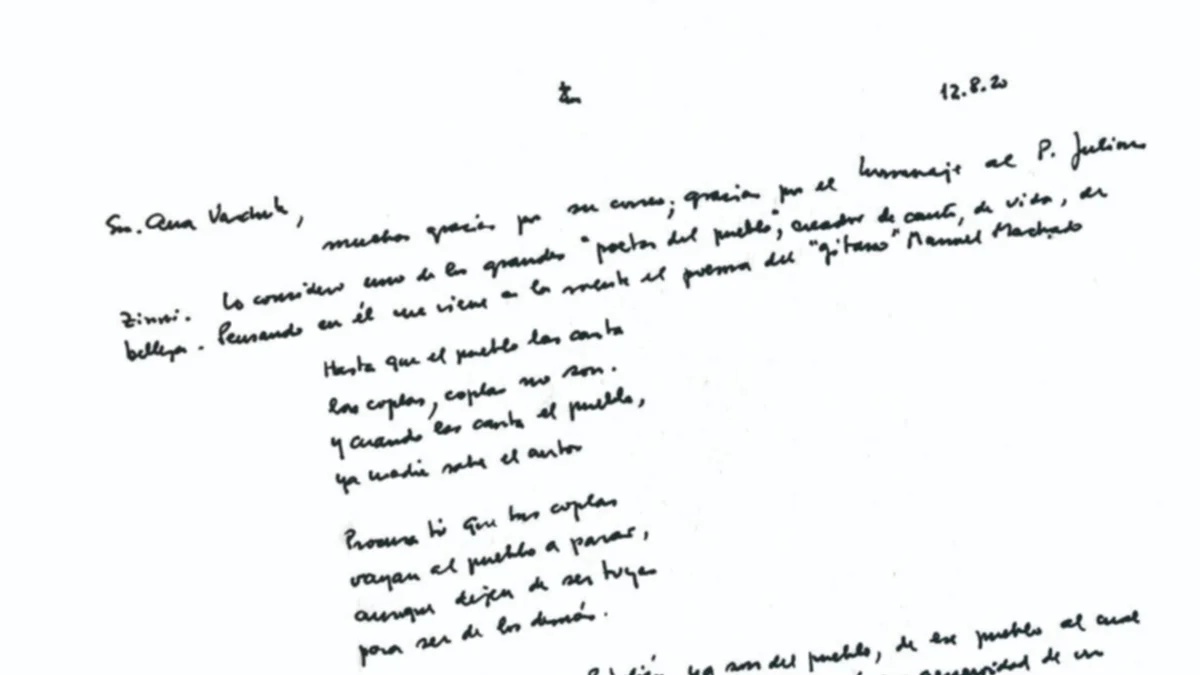 12.8.20
Sra. Ana Varchuk,
muchas gracias por su correo; gracias por el homenaje al P. Julián
Zinni. Lo considero uno de los grandes "poetas del pueblo", creador de canto, de vida, de
belleza. Pensando en él me viene a la mente el poema del "gitano" Manuel Machado
Hasta que el pueblo las canta
las coplas, coplas no son.
y cuando las canta el pueblo,
ya nadie sabe el autor
Procura tú que tus coplas
vayan al pueblo a parar,
aunque dejen de ser tuyas
para ser de los demás.
ya son del pueblo, de ese pueblo al cual
de un